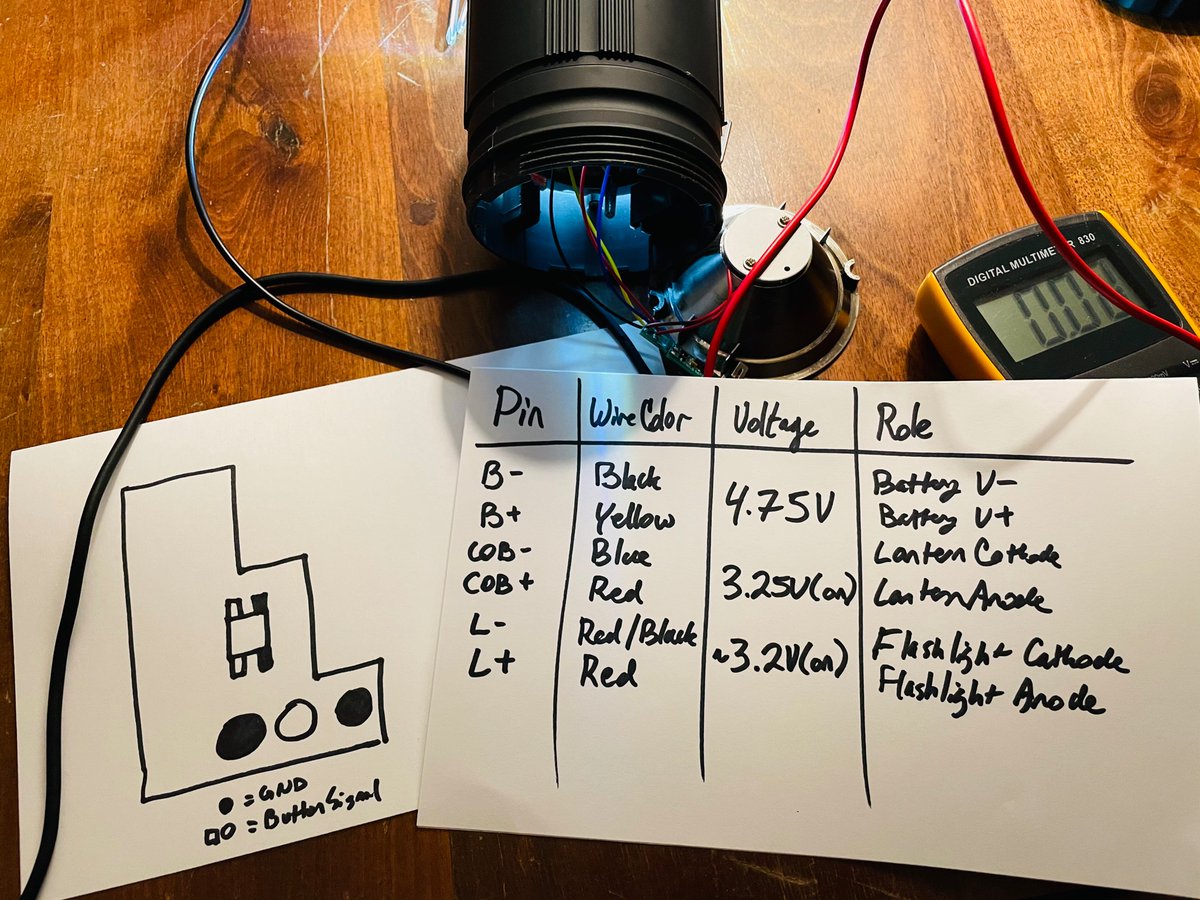 DIGITAL MULTIMETER 830
Pin Wire Color Voltage Role
B- Black 4.75V Battery V-
B+ Yellow Battery V+
COB- Blue 3.25V(on) Lantern Cathode
COB+ Red Lantern Anode
L- Red/Black ~3.2V(on) Flashlight Cathode
L+ Red Flashlight Anode
= GND
= Button Signal